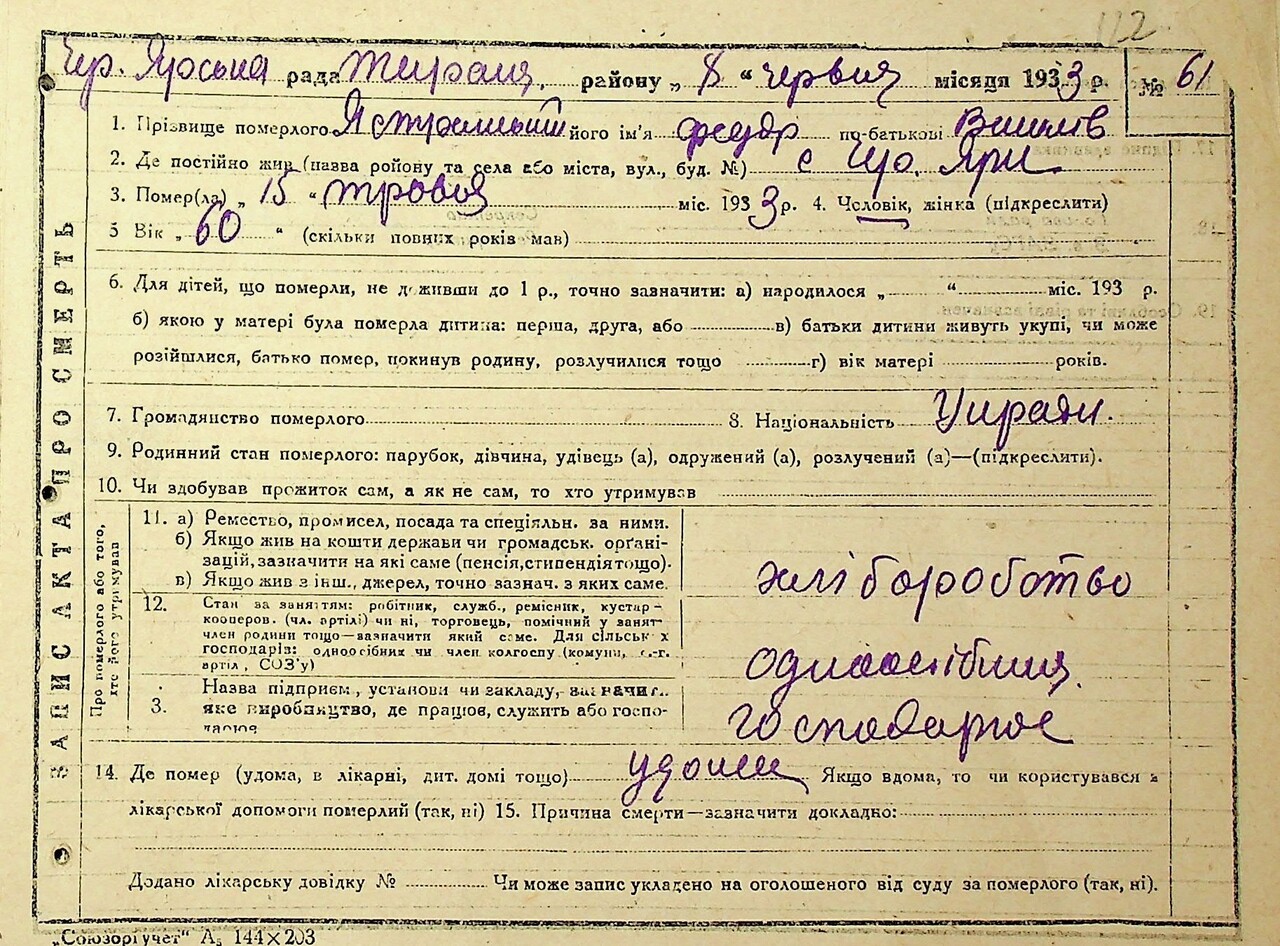 112
Чер. Ярська рада Тираш. району „ 8 “ червня місяця 1933 р. № 61
1. Прізвище померлого його ім'я федір по-батькові
2. Де постійно жив (назва ройону та села або міста, вул., буд. №) с Чер. Яри
3. Помер(ла) „ 15 “ травня міс. 1933 р. 4. Человік, жінка (підкреслити)
5 Вік „ 60 “ (скільки повних років мав)
6. Для дітей, що померли, не доживши до 1 р., точно зазначити: а) народилося „ “ міс. 193 р.
б) якою у матері була померла дитина: перша, друга, або в) батьки дитини живуть укупі, чи може
розійшлися, батько помер, покинув родину, розлучилися тощо г) вік матері років.
7. Громадянство померлого 8. Національність
9. Родинний стан померлого: парубок, дівчина, удівець (а), одружений (а), розлучений (а)—(підкреслити).
10. Чи здобував прожиток сам, а як не сам, то хто утримував
ЗАПИС АКТА ПРО СМЕРТЬ
Про померлого або того,
хто його утримував
11. а) Ремество, промисел, посада та спеціяльн. за ними.
б) Якщо жив на кошти держави чи громадськ. орґані-
зацій, зазначити на які саме (пенсія, стипендія тощо).
в) Якщо жив з інш., джерел, точно зазнач. з яких саме.
хліборобство
12. Стан за заняттям: робітник, служб., ремісник, кустар-
кооперов. (чл. артілі) чи ні, торговець, помічний у занят
член родини тощо—вазначити який саме. Для сільськ х
господарів: одноосібник чи член колгоспу (комуни, с.-г.
артіл, СОЗ'у)
3. Назва підприєм, установи чи закладу,
яке виробництво, де працює, служить або госпо-
господарює
14. Де помер (удома, в лікарні, дит. домі тощо) удома Якщо вдома, то чи користувався з
лікарської допомоги померлий (так, ні) 15. Причина смерти—зазначити докладно:
Додано лікарську довідку № Чи може запис укладено на оголошеного від суду за померлого (так, ні).
„Союзоргучёт“ А₅ 144×203